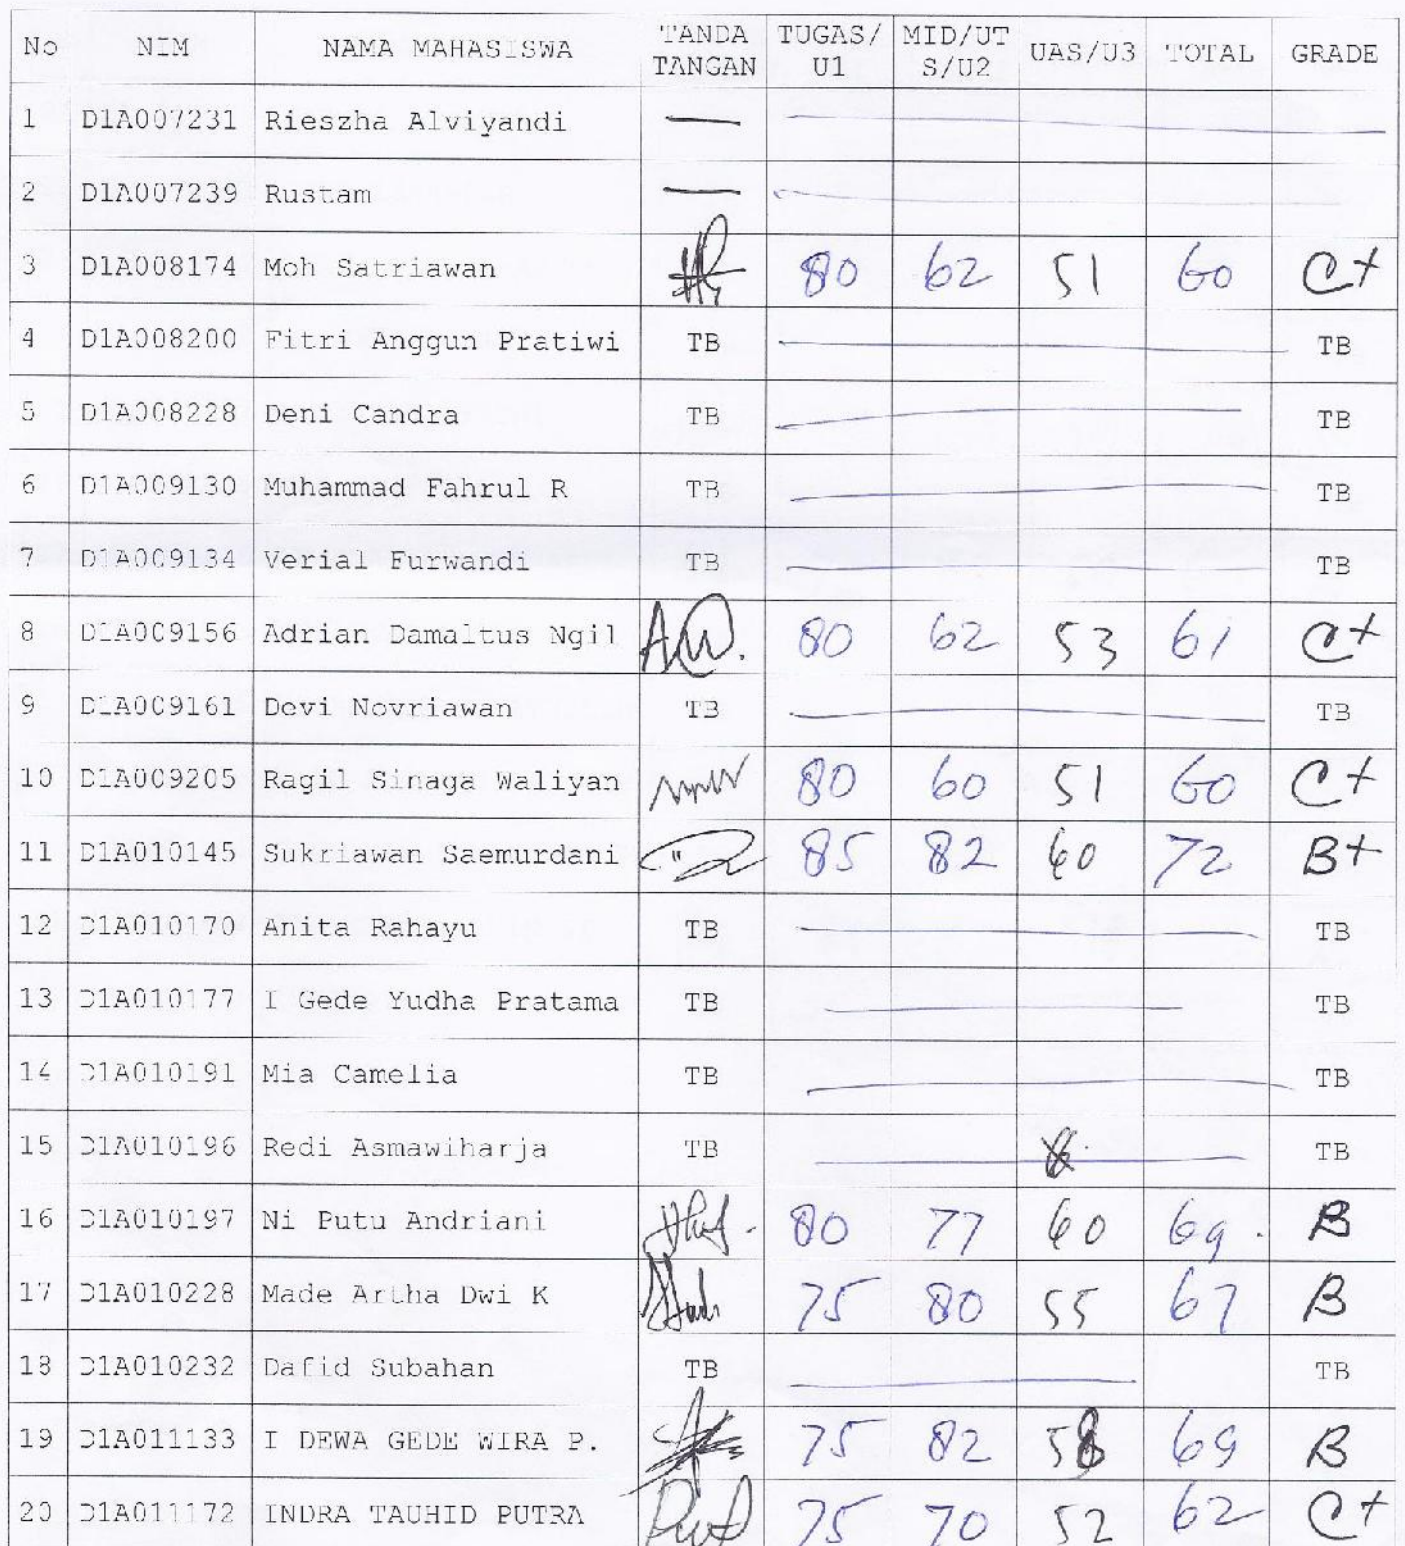 No NIM NAMA MAHASISWA TANDA TANGAN TUGAS/U1 MID/UTS/U2 UAS/U3 TOTAL GRADE
1 D1A007231 Rieszha Alviyandi — —
2 D1A007239 Rustam — —
3 D1A008174 Moh Satriawan 80 62 51 60 C+
4 D1A008200 Fitri Anggun Pratiwi TB — TB
5 D1A008228 Deni Candra TB — TB
6 D1A009130 Muhammad Fahrul R TB — TB
7 D1A009134 Verial Furwandi TB — TB
8 D1A009156 Adrian Damaltus Ngil 80 62 53 61 C+
9 D1A009161 Devi Novriawan TB — TB
10 D1A009205 Ragil Sinaga Waliyan 80 60 51 60 C+
11 D1A010145 Sukriawan Saemurdani 85 82 60 72 B+
12 D1A010170 Anita Rahayu TB — TB
13 D1A010177 I Gede Yudha Pratama TB — TB
14 D1A010191 Mia Camelia TB — TB
15 D1A010196 Redi Asmawiharja TB — TB
16 D1A010197 Ni Putu Andriani 80 77 60 69. B
17 D1A010228 Made Artha Dwi K 75 80 55 67 B
18 D1A010232 Dafid Subahan TB — TB
19 D1A011133 I DEWA GEDE WIRA P. 75 82 58 69 B
20 D1A011172 INDRA TAUHID PUTRA 75 70 52 62 C+